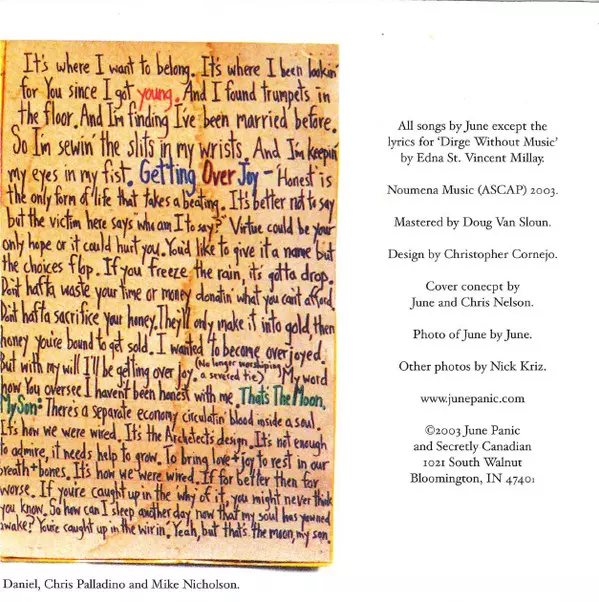 It's where I want to belong. It's where I been lookin'
for You since I got young. And I found trumpets in
the floor. And I'm finding I've been married before.
So I'm sewin' the slits in my wrists. And I'm keepin'
my eyes in my fist. Getting Over Joy - Honest is
the only form of life that takes a beating. It's better not to say
but the victim here says "who am I to say?" Virtue could be your
only hope or it could hurt you. You'd like to give it a name but
the choices flop. If you freeze the rain, it's gotta drop.
Don't hafta waste your time or money donatin' what you can't afford.
Don't hafta sacrifice your honey. They'll only make it into gold, then
honey you're bound to get sold. I wanted to become overjoyed.
But with my will I'll be getting over joy. (No longer worshiping a severed tie) My word
how You oversee I haven't been honest with me. That's The Moon,
My Son: There's a separate economy circulatin' blood inside a soul.
It's how we were wired. It's the Architect's design. It's not enough
to admire, it needs help to grow. To bring love + joy to rest in our
breath + bones. It's how we were wired. If for better then for
worse. If you're caught up in the why of it, you might never think
you know. So how can I sleep another day now that my soul has yawned
awake? You're caught up in the wirin'. Yeah, but that's the moon, my son.
Daniel, Chris Palladino and Mike Nicholson.
All songs by June except the
lyrics for 'Dirge Without Music'
by Edna St. Vincent Millay.
Noumena Music (ASCAP) 2003.
Mastered by Doug Van Sloun.
Design by Christopher Cornejo.
Cover conecpt by
June and Chris Nelson.
Photo of June by June.
Other photos by Nick Kriz.
www.junepanic.com
©2003 June Panic
and Secretly Canadian
1021 South Walnut
Bloomington, IN 47401